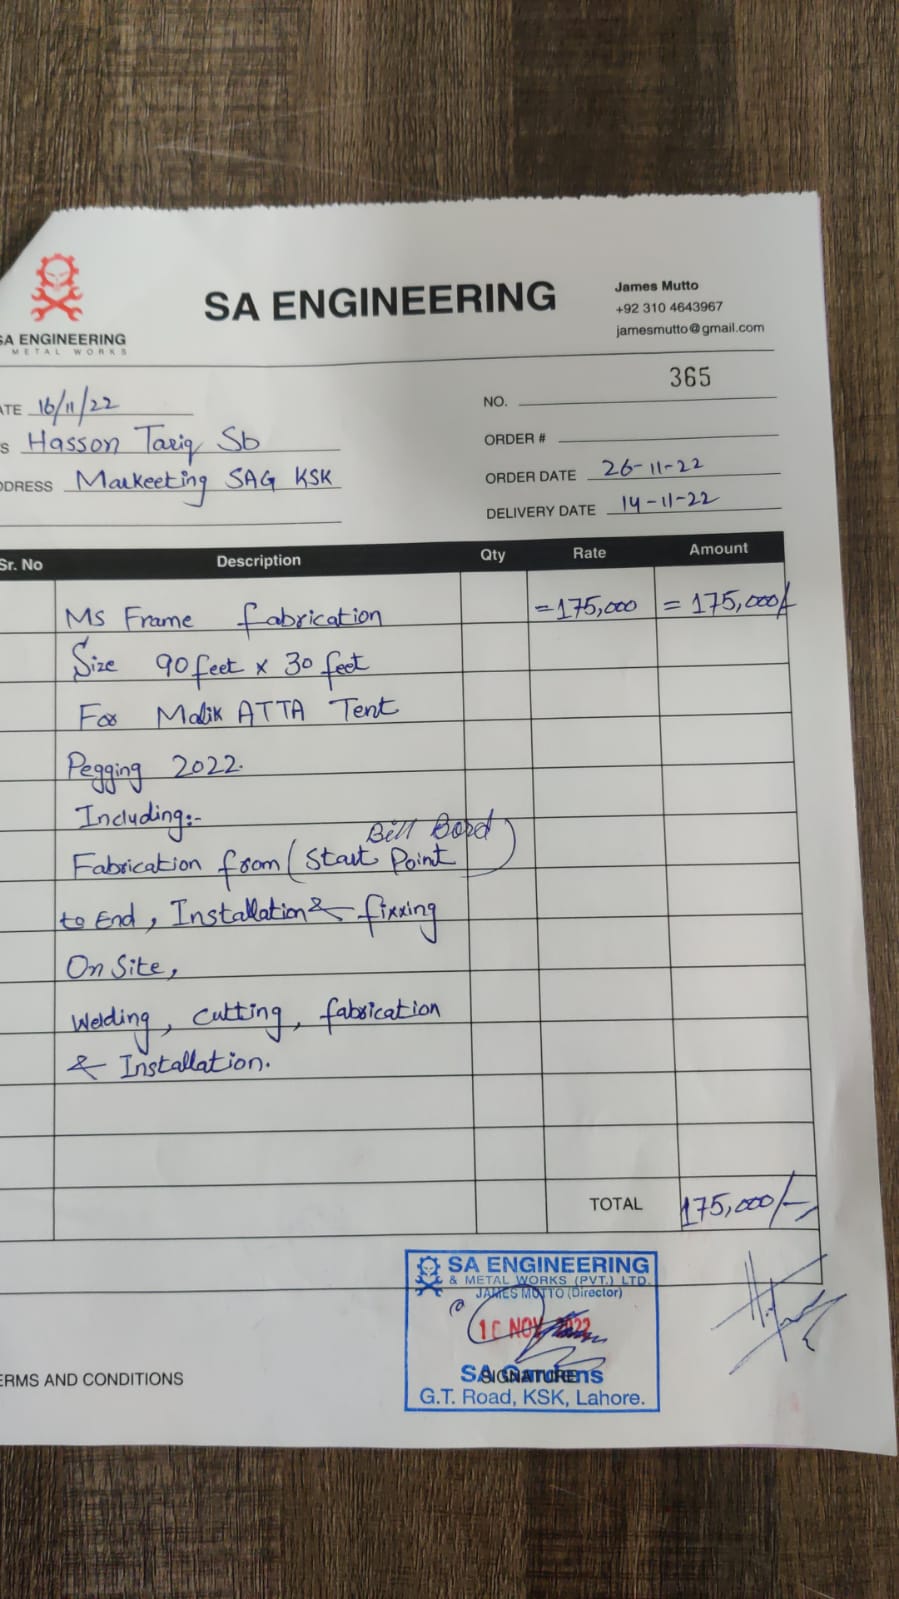 SA ENGINEERING
METAL WORKS
SA ENGINEERING
James Mutto
+92 310 4643967
jamesmutto@gmail.com
ATE 16/11/22
NO. 365
S Hasson Tariq Sb
ORDER #
DDRESS Markeeting SAG KSK
ORDER DATE 26-11-22
DELIVERY DATE 14-11-22
Sr. No Description Qty Rate Amount
Ms Frame fabrication =175,000 = 175,000/
Size 90 feet x 30 feet
For Malik ATTA Tent
Pegging 2022.
Including:-
Bill Bord
Fabrication from (Start Point)
to End, Installation & fixxing
On Site,
Welding, cutting, fabrication
& Installation.
TOTAL 175,000/-
SA ENGINEERING
& METAL WORKS (PVT.) LTD.
JAMES MUTTO (Director)
NOV 2022
SA Gardens
SIGNATURE
G.T. Road, KSK, Lahore.
ERMS AND CONDITIONS